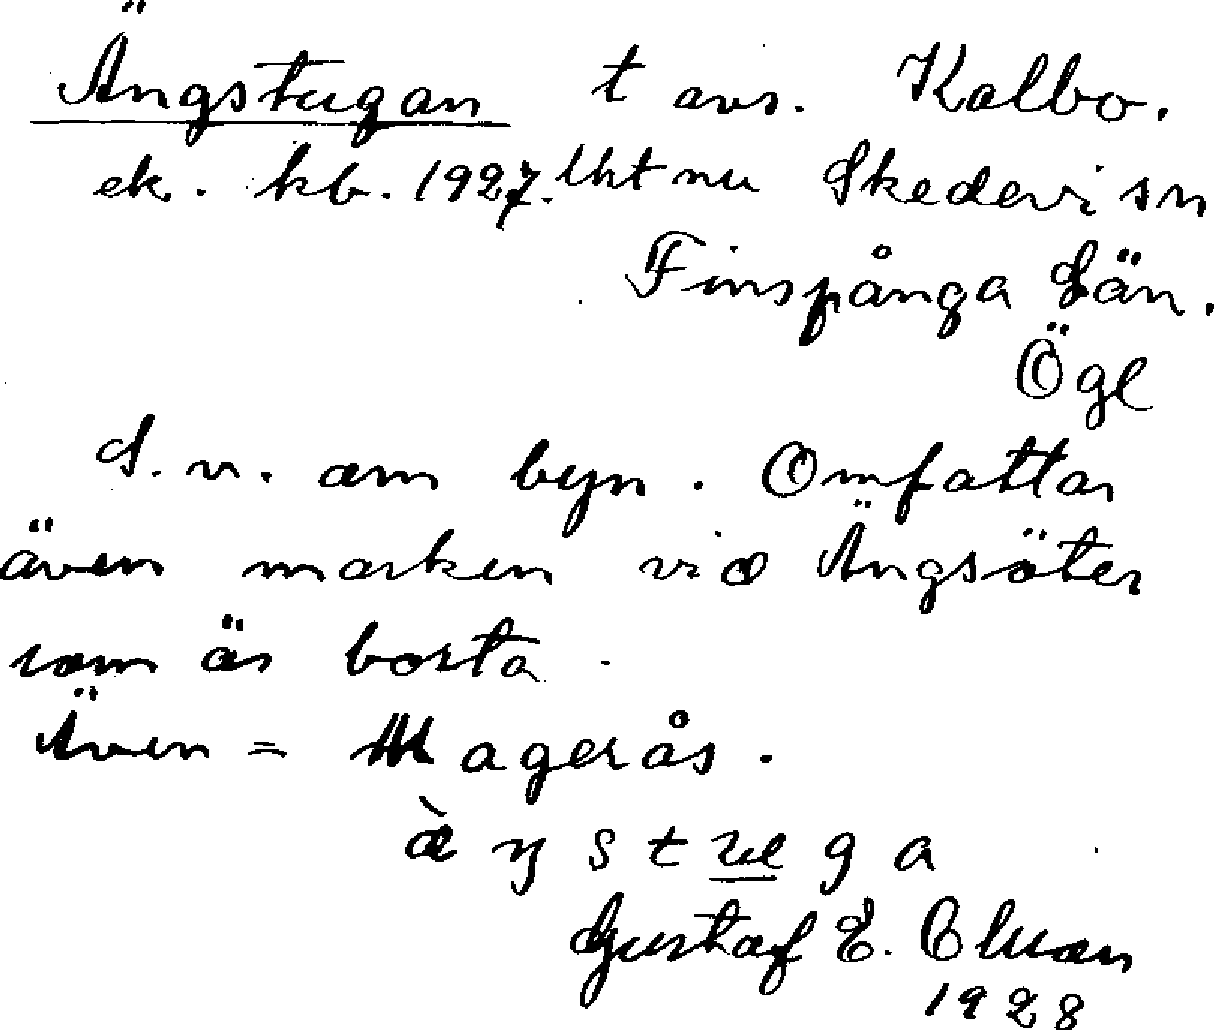 Ängstugan t avs. Kalbo.
ek. kb. 1927. lht nu Skedevi sn
Finspånga Län.
Ögl
S. v. om byn. Omfattar
även marken vid Ängsäter
som är borta.
Även = Magerås.
1928
Gustaf E.